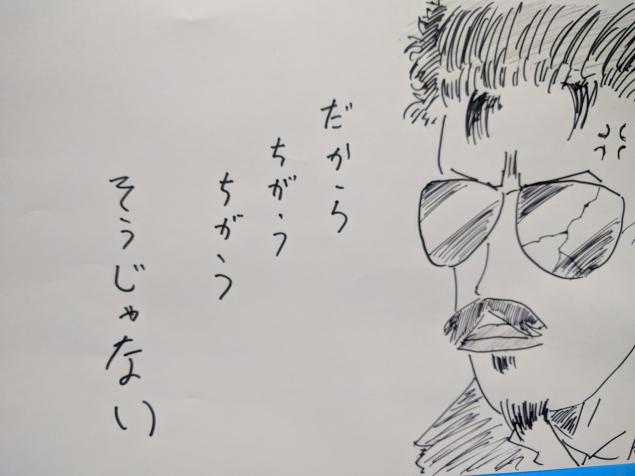 だから
ちがう
ちがう
そうじゃない